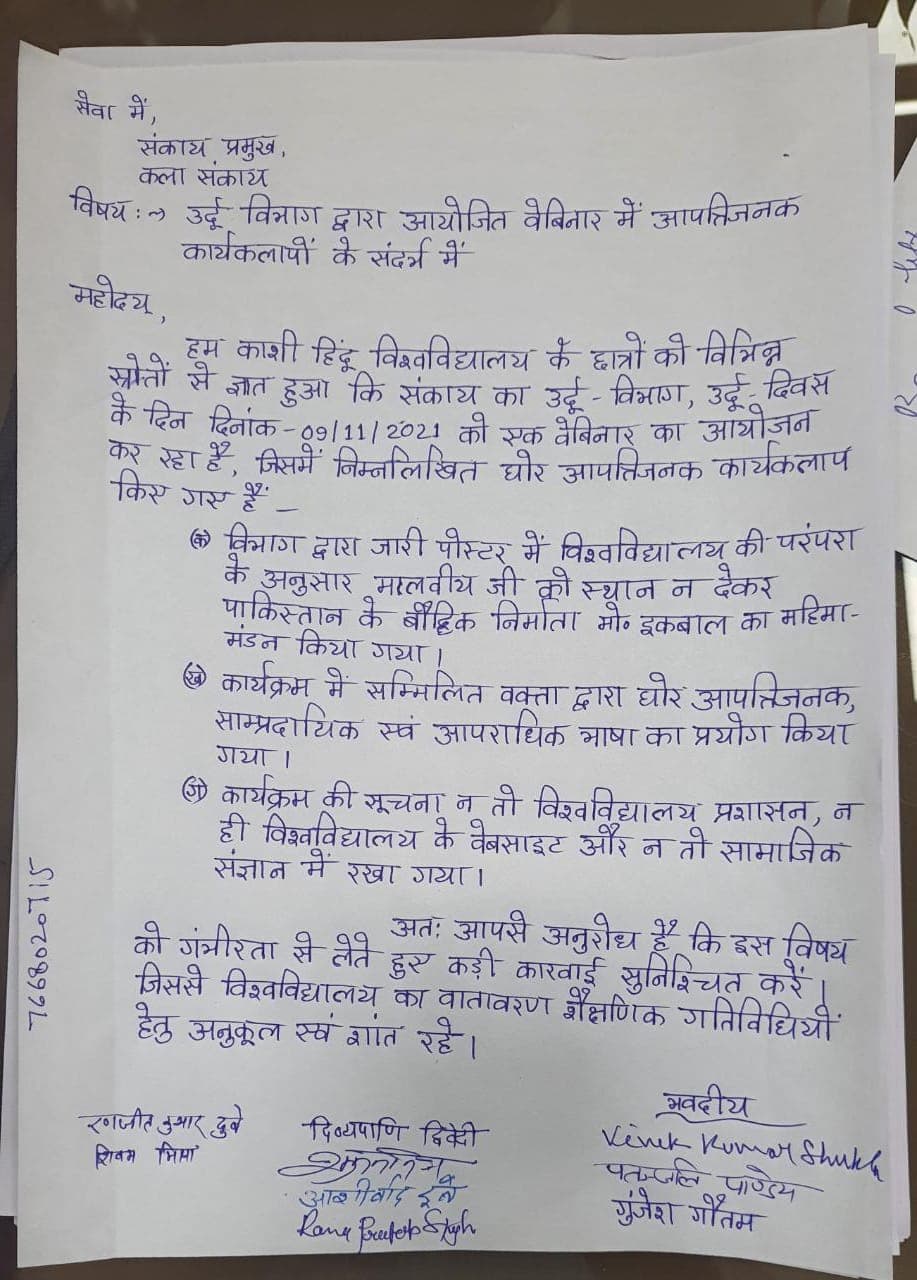 सेवा में,
संकाय प्रमुख,
कला संकाय
विषय :→ उर्दू विभाग द्वारा आयोजित वेबिनार में आपत्तिजनक
कार्यकलापों के संदर्भ में
महोदय,
हम काशी हिंदू विश्वविद्यालय के छात्रों को विभिन्न
स्रोतों से ज्ञात हुआ कि संकाय का उर्दू-विभाग, उर्दू-दिवस
के दिन दिनांक-09/11/2021 को एक वेबिनार का आयोजन
कर रहा है, जिसमें निम्नलिखित घोर आपत्तिजनक कार्यकलाप
किए गए हैं –
(क) विभाग द्वारा जारी पोस्टर में विश्वविद्यालय की परंपरा
के अनुसार मालवीय जी को स्थान न देकर
पाकिस्तान के बौद्धिक निर्माता मो॰ इकबाल का महिमा-
मंडन किया गया।
(ख) कार्यक्रम में सम्मिलित वक्ता द्वारा घोर आपत्तिजनक,
साम्प्रदायिक एवं आपराधिक भाषा का प्रयोग किया
गया।
(ग) कार्यक्रम की सूचना न तो विश्वविद्यालय प्रशासन, न
ही विश्वविद्यालय के वेबसाइट और न तो सामाजिक
संज्ञान में रखा गया।
अतः आपसे अनुरोध है कि इस विषय
को गंभीरता से लेते हुए कड़ी कारवाई सुनिश्चित करें।
जिससे विश्वविद्यालय का वातावरण शैक्षणिक गतिविधियों
हेतु अनुकूल एवं शांत रहे।
7668020715
भवदीय
रणजीत कुमार दुबे
शिवम
दिव्यपाणि द्विवेदी
आशीर्वाद दुबे
Rana Singh
Vivek Kumar Shukla
पतञ्जलि पाण्डेय
गुंजेश गौतम